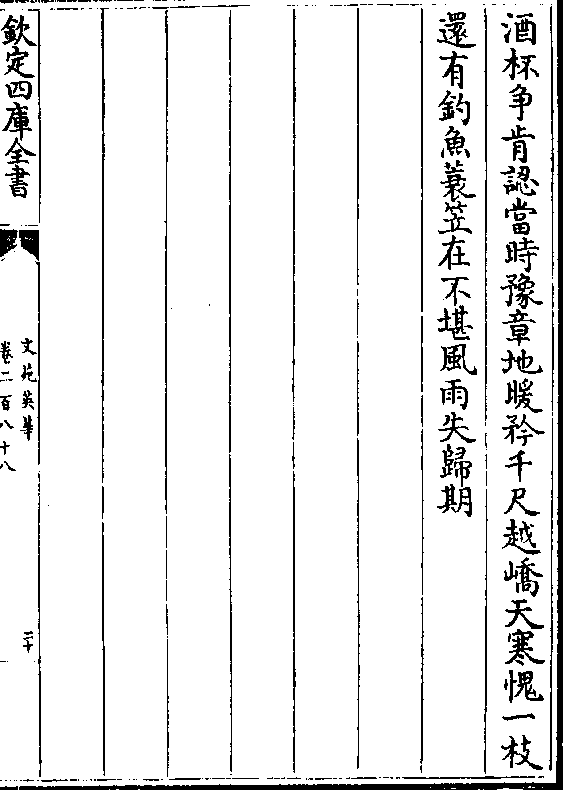 酒杯争肯認當時豫章地暖矜千尺越嶠天寒愧一枝
還有釣魚蓑笠在不堪風雨失歸期
欽定四庫全書
文苑英華
卷二百八十八
二十